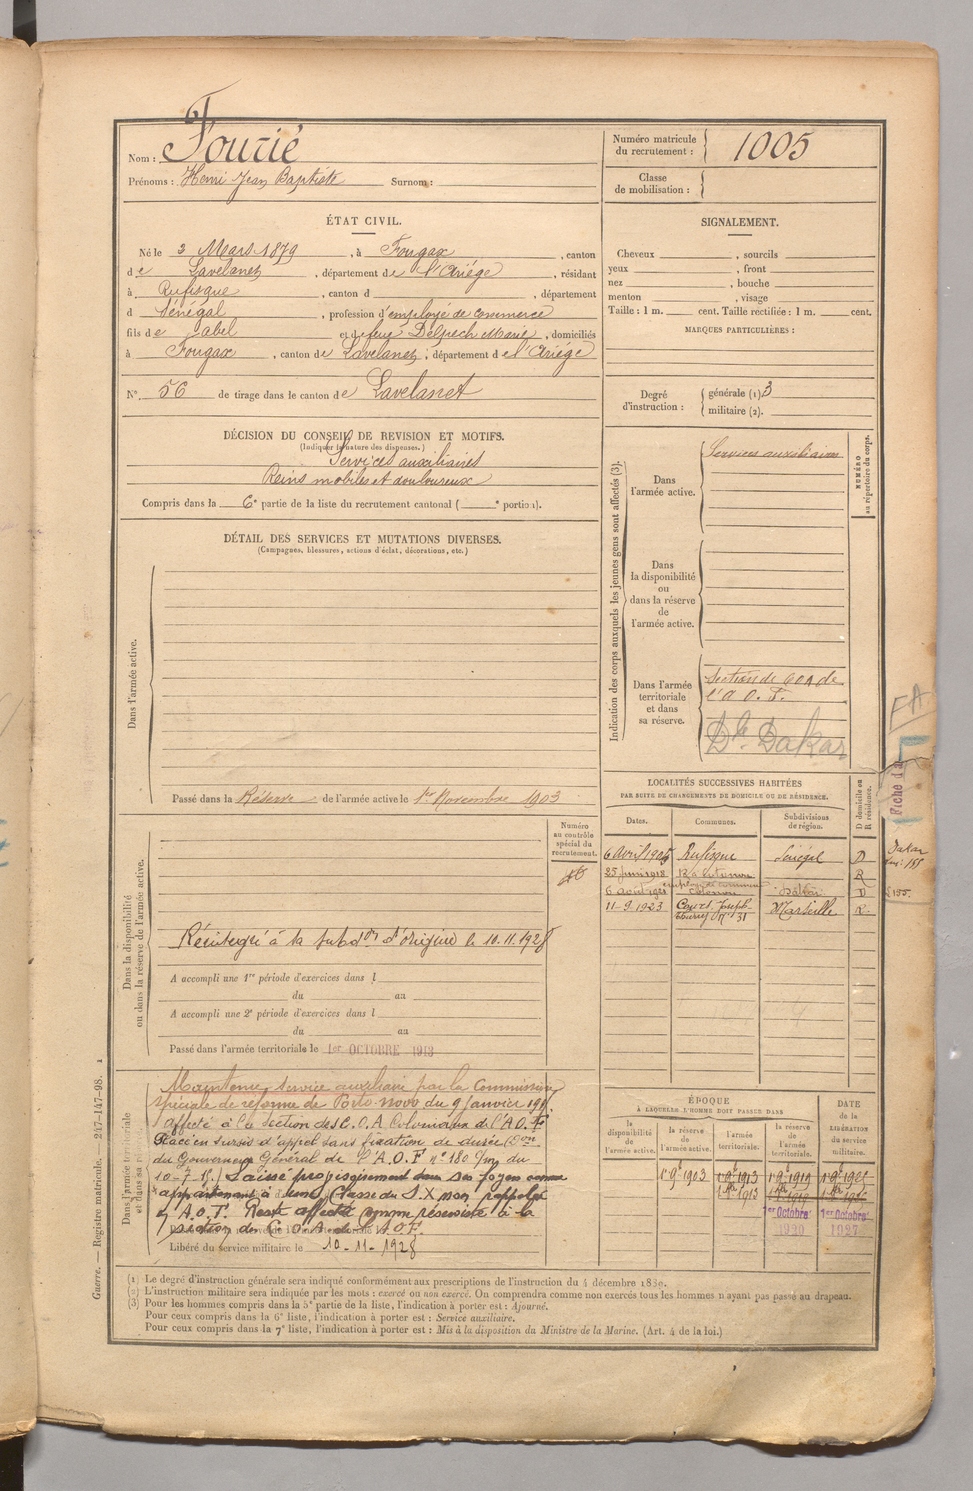 Nom : Fourié
Prénoms : Henri Jean Baptiste Surnom :
Numéro matricule du recrutement : 1005
Classe de mobilisation :
ÉTAT CIVIL.
Né le 2 Mars 1879, à Fougax, canton
de Lavelanet, département de l'Ariége, résidant
à Rufisque, canton d, département
d Sénégal, profession d'employé de commerce
fils de Abel et de feue Delpech Marie, domiciliés
à Fougax, canton de Lavelanet, département de l'Ariége
N° 56 de tirage dans le canton de Lavelanet
SIGNALEMENT.
Cheveux, sourcils
yeux, front
nez, bouche
menton, visage
Taille : 1 m. cent. Taille rectifiée : 1 m. cent.
MARQUES PARTICULIÈRES :
Degré d'instruction : générale (1). 3
militaire (2).
DÉCISION DU CONSEIL DE REVISION ET MOTIFS.
(Indiquer la nature des dispenses.)
Services auxiliaires
Reins mobiles et douloureux
Compris dans la 6e partie de la liste du recrutement cantonal ( e portion).
DÉTAIL DES SERVICES ET MUTATIONS DIVERSES.
(Campagnes, blessures, actions d'éclat, décorations, etc.)
Dans l'armée active.
Passé dans la Réserve de l'armée active le 1er Novembre 1903
Indication des corps auxquels les jeunes gens sont affectés (3).
Dans l'armée active.
Services auxiliaires
NUMÉRO au répertoire du corps.
Dans la disponibilité ou dans la réserve de l'armée active.
Dans l'armée territoriale et dans sa réserve.
Section de COA de
l'A O. F.
Dakar
Fiche
LOCALITÉS SUCCESSIVES HABITÉES
PAR SUITE DE CHANGEMENTS DE DOMICILE OU DE RÉSIDENCE.
Dates. Communes. Subdivisions de région. D domicile ou R résidence.
6 Avril 1905 Rufisque Sénégal D
25 Juin 1918 R
6 août 1921 Cotonou D
11-9-1923 Cours Joseph Thierry N° 31 Marseille R.
Dakar
155
Dans la disponibilité ou dans la réserve de l'armée active.
Numéro au contrôle spécial du recrutement.
Réintégré à la subdon d'origine le 10.11.1928
A accompli une 1re période d'exercices dans l
du au
A accompli une 2e période d'exercices dans l
du au
Passé dans l'armée territoriale le 1er OCTOBRE 1913
Dans l'armée territoriale et dans sa réserve.
Maintenu service auxiliaire par la Commission
spéciale de réforme de Porto-Novo du 9 Janvier
affecté à la section des C.O.A Coloniaux de l'A.O.F
Placé en sursis d'appel sans fixation de durée (Don
du Gouverneur Général de l'A.O.F n° 180 c/m du
Laissé provisoirement dans ses foyers comme
appartenant à une classe du S.X non rappelée
en A.O.F. Reste affecté comme réserviste à la
section de C.O.A de l'A.O.F.
Libéré du service militaire le 10-11-1928
ÉPOQUE
À LAQUELLE L'HOMME DOIT PASSER DANS
la disponibilité de l'armée active. la réserve de l'armée active. l'armée territoriale. la réserve de l'armée territoriale. DATE de la LIBÉRATION du service militaire.
1er 9bre 1903
1er Octobre 1920
1er Octobre 1927
Guerre. — Registre matricule. — 247-147-98. 1
(1) Le degré d'instruction générale sera indiqué conformément aux prescriptions de l'instruction du 4 décembre 1889.
(2) L'instruction militaire sera indiquée par les mots : exercé ou non exercé. On comprendra comme non exercés tous les hommes n'ayant pas passé au drapeau.
(3) Pour les hommes compris dans la 5e partie de la liste, l'indication à porter est : Ajourné.
Pour ceux compris dans la 6e liste, l'indication à porter est : Service auxiliaire.
Pour ceux compris dans la 7e liste, l'indication à porter est : Mis à la disposition du Ministre de la Marine. (Art. 4 de la loi.)